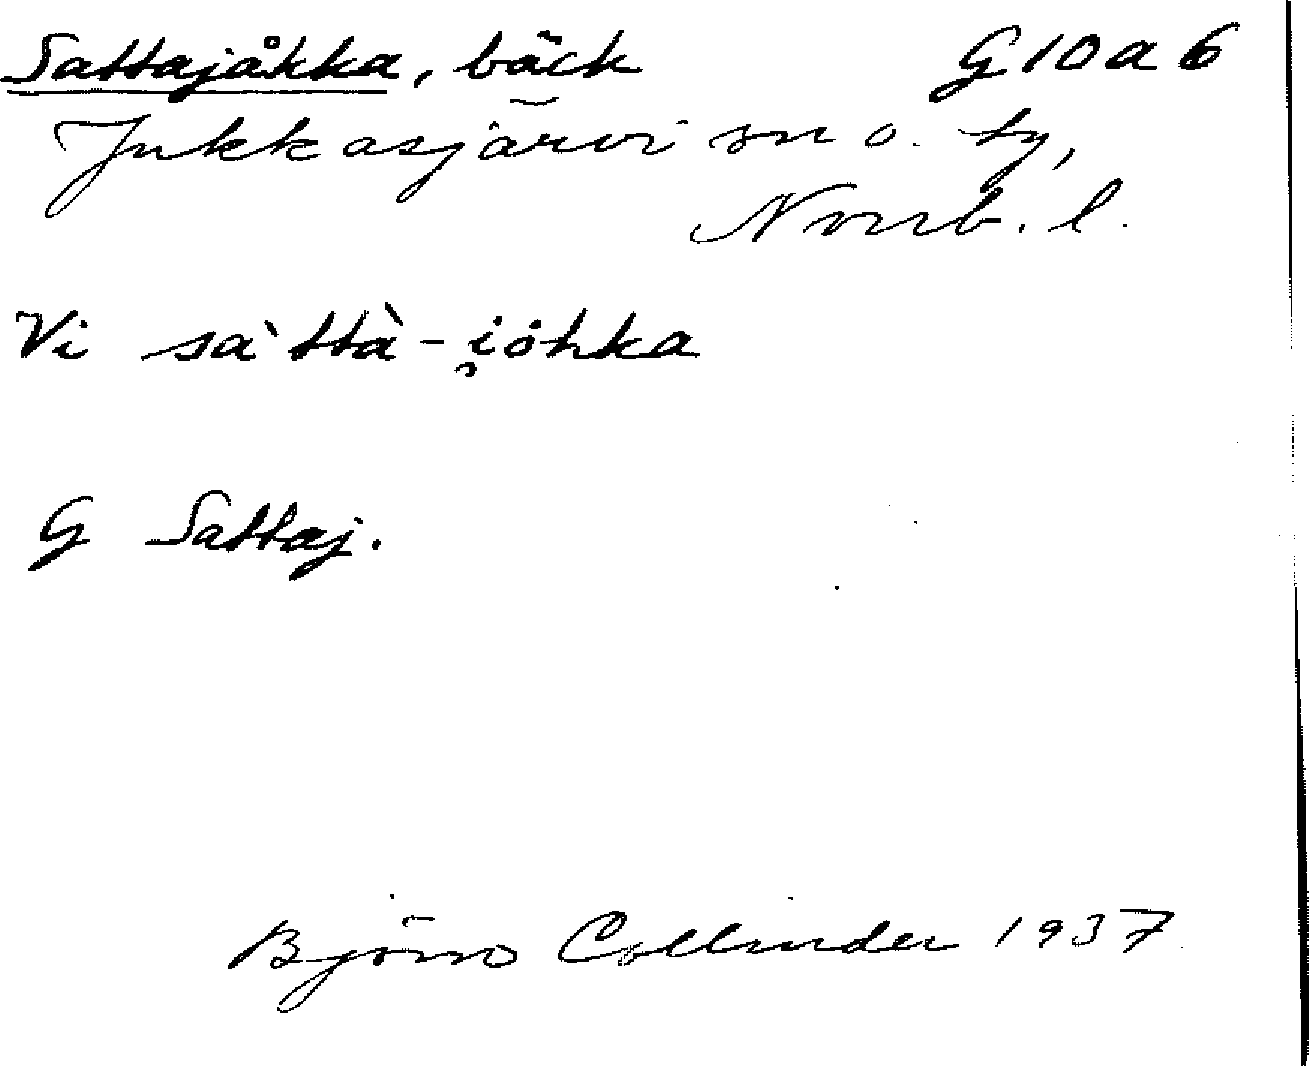 Sattajåkka, bäck G10a6
Jukkasjärvi sn o. ty,
Norrb. l.
Vi sa`ttà-i̯ȯhka
G Sattaj.
Björn Collinder 1937